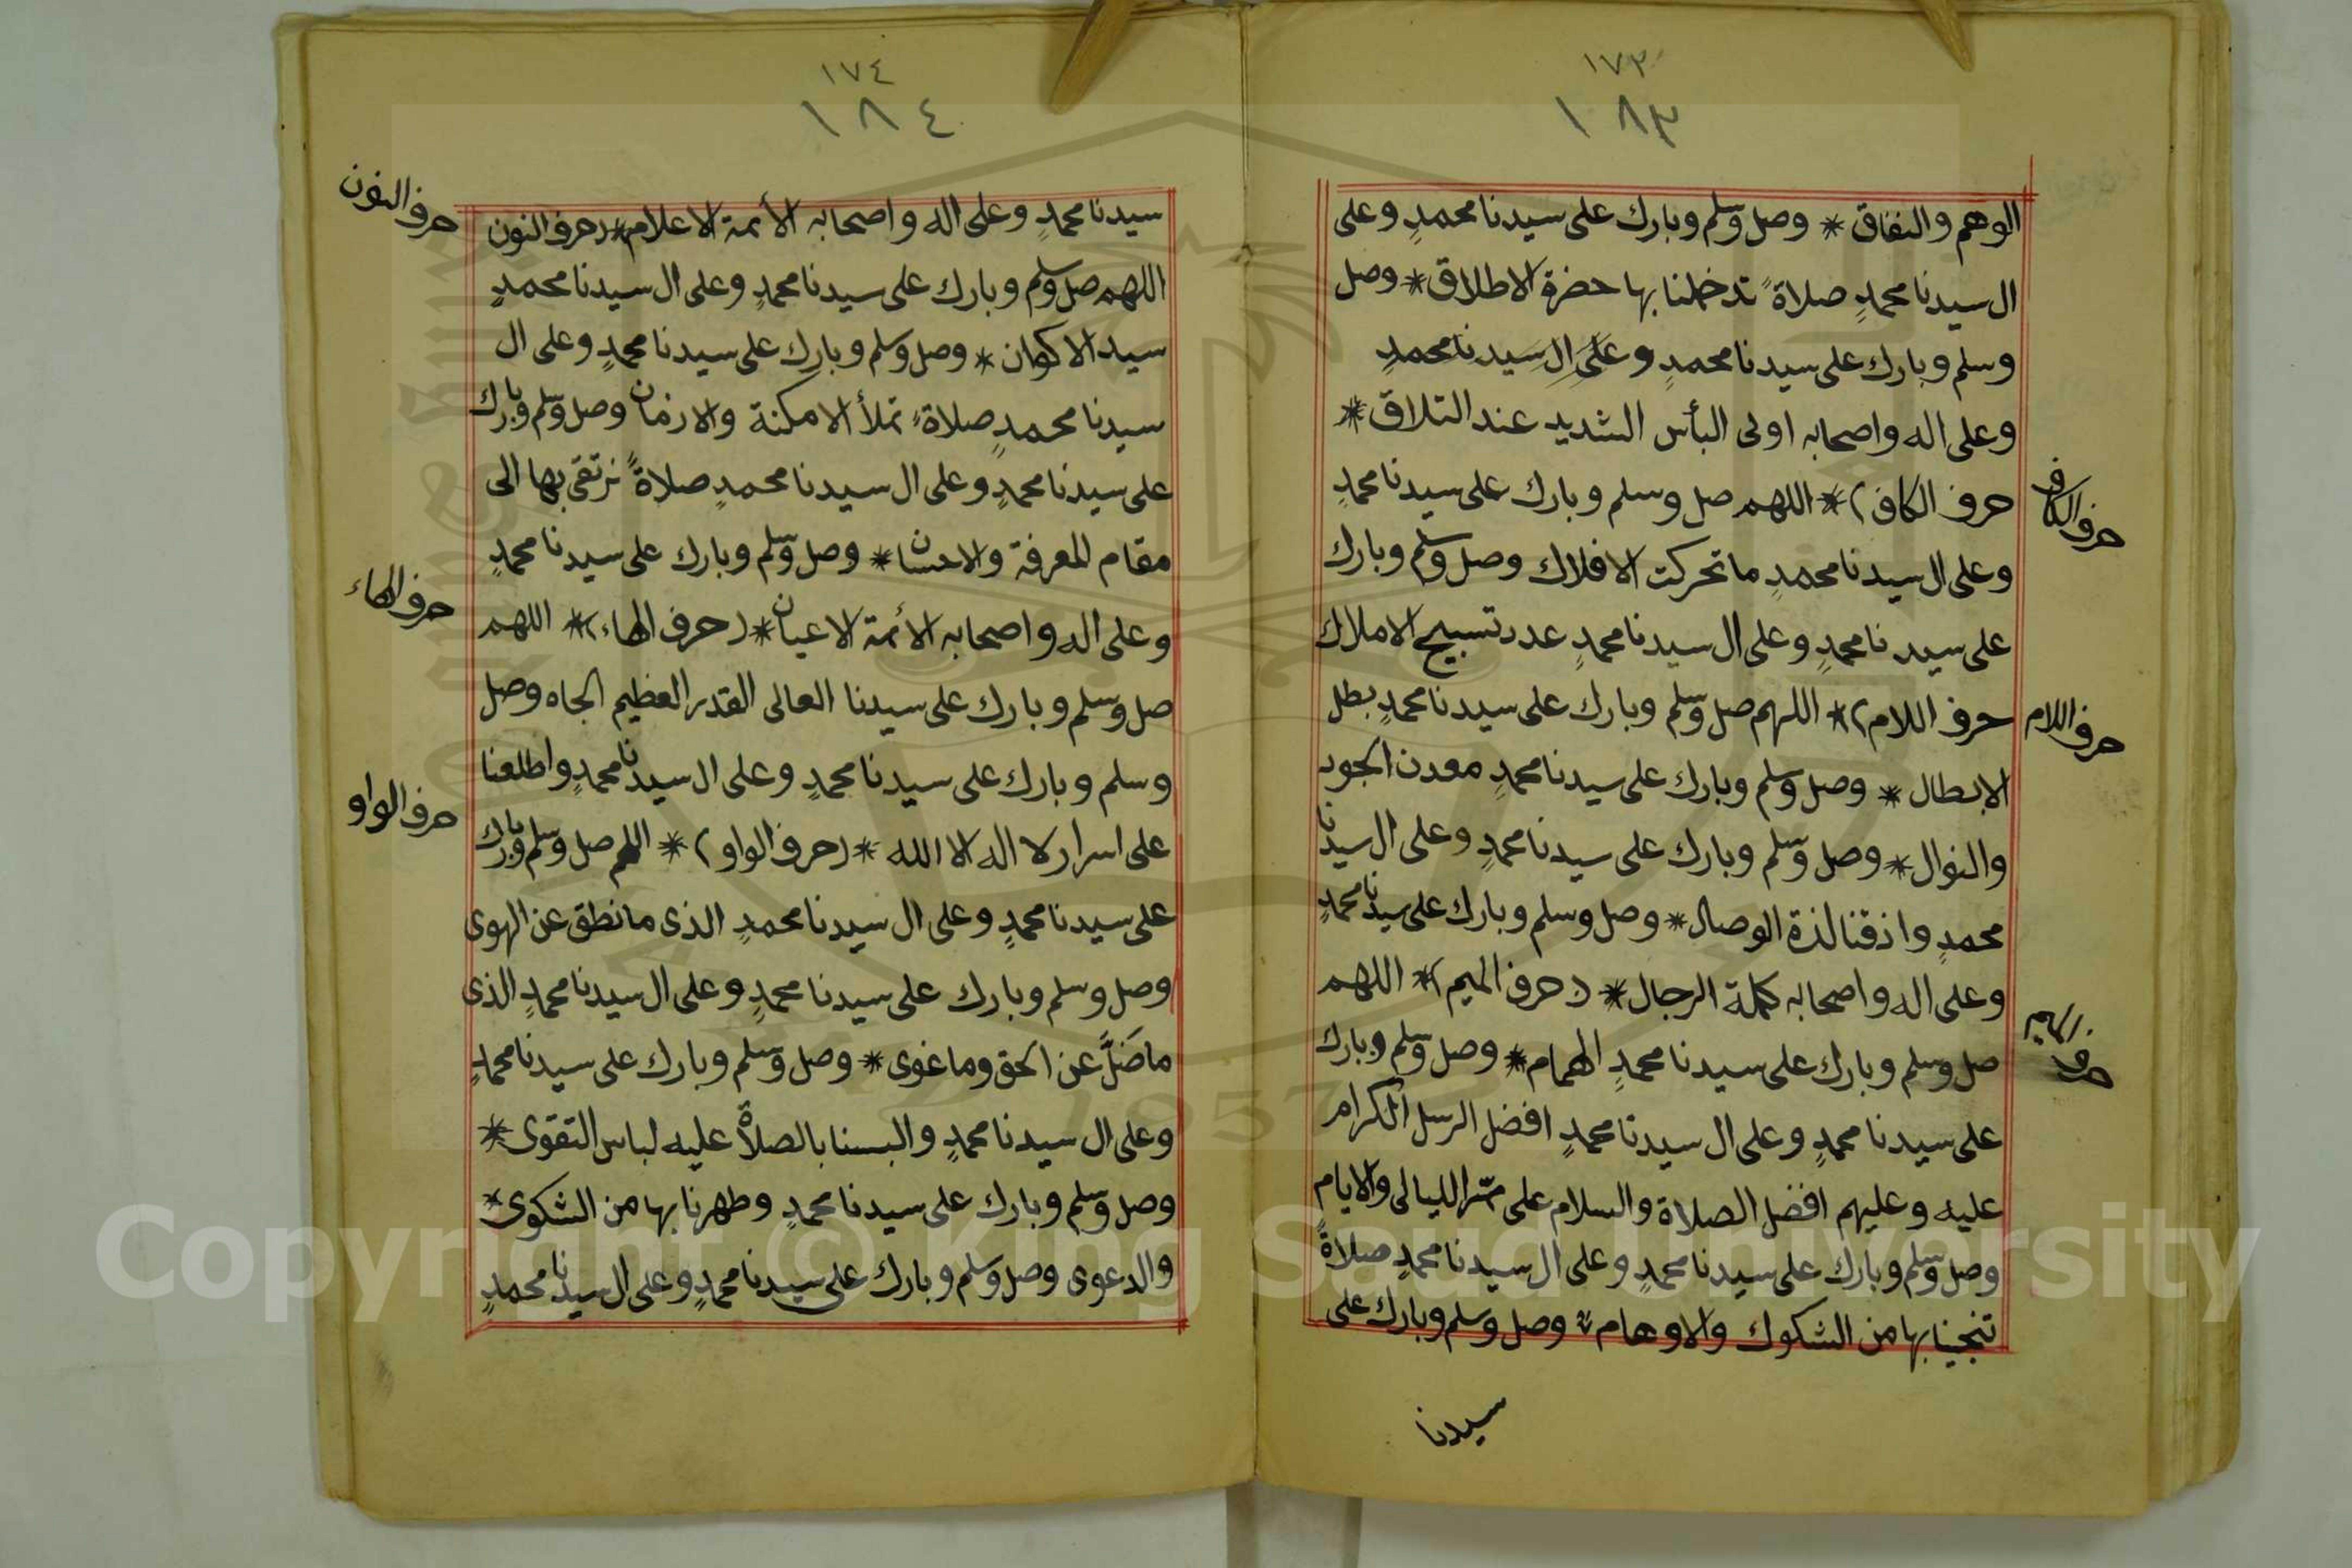 ١٧٣
١٨٣
الوهم والنفاق * وصل وسلم وبارك على سيدنا محمدٍ وعلى
ال سيدنا محمدٍ صلاةً تدخلنا بها حضرة الاطلاق * وصل
وسلم وبارك على سيدنا محمدٍ وعَلَى الِ سَيِدنا محمدٍ
وعلى اله واصحابه اولى البأس الشديد عند التلاق *
حرف الكاف) * اللهم صل وسلم وبارك على سيدنا محمدٍ
حرف الكاف
وعلى ال سيدنا محمدٍ ما تحركت الافلاك وصل وسلم وبارك
على سيدنا محمدٍ وعلى ال سيدنا محمدٍ عدد تسبيح الاملاك
حرف اللام) * اللهم صل وسلم وبارك على سيدنا محمدٍ بطل
حرف اللام
الابطال * وصل وسلم وبارك على سيدنا محمدٍ معدن الجود
والنوال * وصل وسلم وبارك على سيدنا محمدٍ وعلى ال سيدنا
محمدٍ واذقنا لذة الوصال * وصل وسلم وبارك على سيدنا محمدٍ
وعلى اله واصحابه كملة الرجال * (حرف الميم) * اللهم
حرف الميم
صل وسلم وبارك على سيدنا محمدٍ الهمام * وصل وسلم وبارك
على سيدنا محمدٍ وعلى ال سيدنا محمدٍ افضل الرسل الكرام
عليه وعليهم افضل الصلاة والسلام على ممّر الليالى والايام
وصل وسلم وبارك على سيدنا محمدٍ وعلى ال سيدنا محمدٍ صلاةً
تنجينا بها من الشكوك والاوهام * وصل وسلم وبارك على
سيدنا
١٧٤
١٨٤
سيدنا محمدٍ وعلى اله واصحابه الأئمة الاعلام * (حرف النون
حرف النون
اللهم صل وسلم وبارك على سيدنا محمدٍ وعلى ال سيدنا محمدٍ
سيد الاكوان * وصل وسلم وبارك على سيدنا محمدٍ وعلى ال
سيدنا محمدٍ صلاةً تملأ الامكنة والازمان وصل وسلم وبارك
على سيدنا محمدٍ وعلى ال سيدنا محمدٍ صلاةً نرتقى بها الى
مقام المعرفة والاحسان * وصل وسلم وبارك على سيدنا محمدٍ
وعلى اله واصحابه الأئمة الاعيان * (حرف الهاء) * اللهم
حرف الهاء
صل وسلم وبارك على سيدنا العالى القدر العظيم الجاه وصل
وسلم وبارك على سيدنا محمدٍ وعلى ال سيدنا محمدٍ واطلعنا
على اسرار لا اله الا الله * (حرف الواو) * اللهم صل وسلم وبارك
حرف الواو
على سيدنا محمدٍ وعلى ال سيدنا محمدٍ الذى ما نطق عن الهوى
وصل وسلم وبارك على سيدنا محمدٍ وعلى ال سيدنا محمدٍ الذى
ما ضَلَّ عن الحق وما غوى * وصل وسلم وبارك على سيدنا محمدٍ
وعلى ال سيدنا محمدٍ والبسنا بالصلاة عليه لباس التقوى *
وصل وسلم وبارك على سيدنا محمدٍ وطهرنا بها من الشكوى *
والدعوى وصل وسلم وبارك على سيدنا محمدٍ وعلى ال سيدنا محمدٍ
Copyright © King Saud University
1957